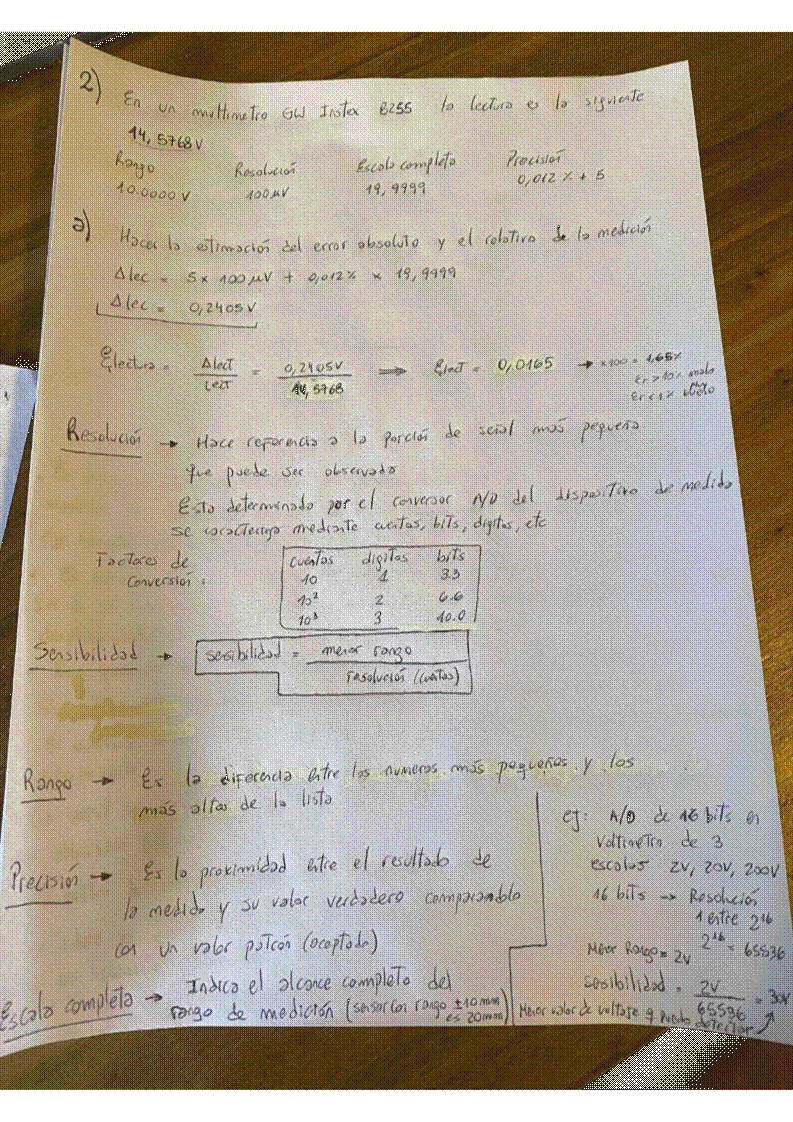 2) En un multimetro GW Instex 8255 la lectura es la siguiente
14,5768 V
Rango Resolución Escala completa Precisión
10.0000 V 100 μV 19,9999 0,012 % + 5
a) Hacer la estimación del error absoluto y el relativo de la medición
Δlec = 5 x 100 μV + 0,012 % x 19,9999
Δlec = 0,2405 V
Electura = Δlect / Lect = 0,2405 V / 14,5768 ⟹ Elect = 0,0165 → x100 = 1,65 %
Er > 10 % malo
Er < 1 %
Resolución → Hace referencia a la porción de señal más pequeña
que puede ser observada
Esta determinado por el conversor A/D del dispositivo de medida
se caracteriza mediante cuentas, bits, digitos, etc
Factores de
Conversión:
cuentas digitos bits
10 1 3.3
10² 2 6.6
10³ 3 10.0
Sensibilidad → sensibilidad = menor rango / resolución (cuentas)
Rango → Es la diferencia entre los numeros más pequeños y los
más altos de la lista
Precisión → Es la proximidad entre el resultado de
la medida y su valor verdadero comparandolo
con un valor patrón (aceptado)
Escala completa → Indica el alcance completo del
rango de medición (sensor con rango ±10 mm
es 20 mm)
ej: A/D de 16 bits en
Voltimetro de 3
escalas 2V, 20V, 200V
16 bits → Resolución
1 entre 2¹⁶
2¹⁶ = 65536
Menor Rango = 2V
sensibilidad = 2V / 65536 = 30V
Menor valor de voltaje q puedo detectar